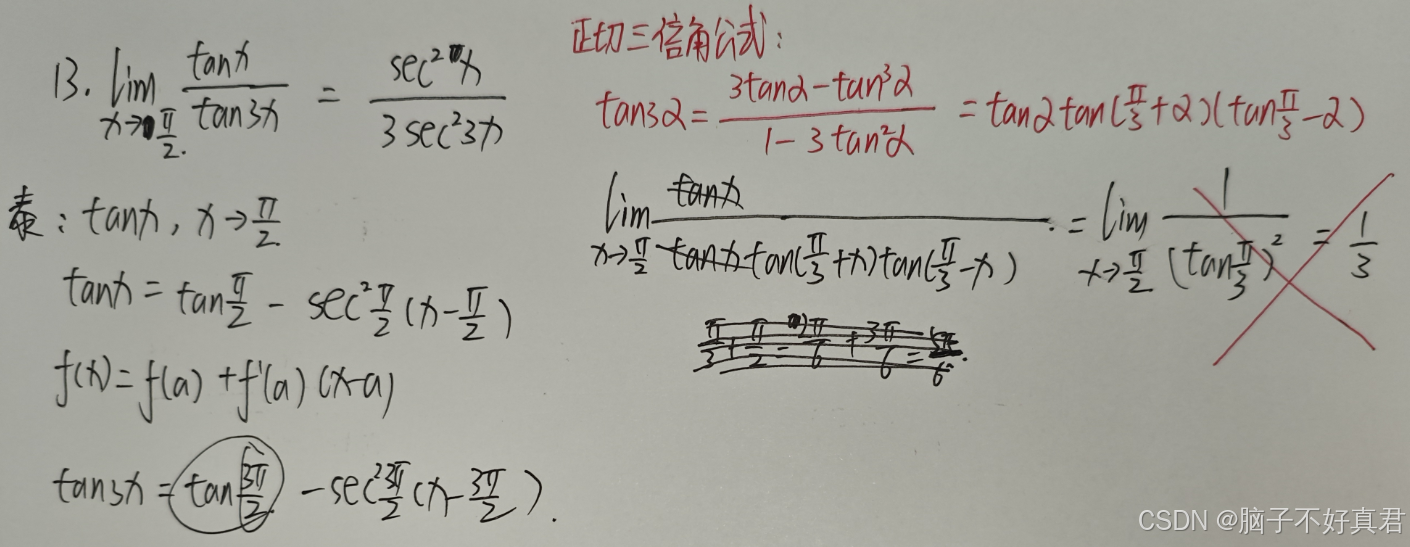 13. lim x→π/2. tanx/tan3x = sec²x/3sec²3x
泰: tanx, x→π/2
tanx = tanπ/2 - sec²π/2(x-π/2)
f(x) = f(a) + f'(a)(x-a)
tan3x = tan3π/2 - sec²3π/2(x-3π/2).
正切三倍角公式:
tan3α = 3tanα-tan³α/1-3tan²α = tanαtan(π/3+α)(tanπ/3-α)
lim x→π/2 tanx/tanxtan(π/3+x)tan(π/3-x) = lim x→π/2 1/(tanπ/3)² = 1/3
π/3+π/2=2π/6+3π/6=5π/6.
CSDN @脑子不好真君